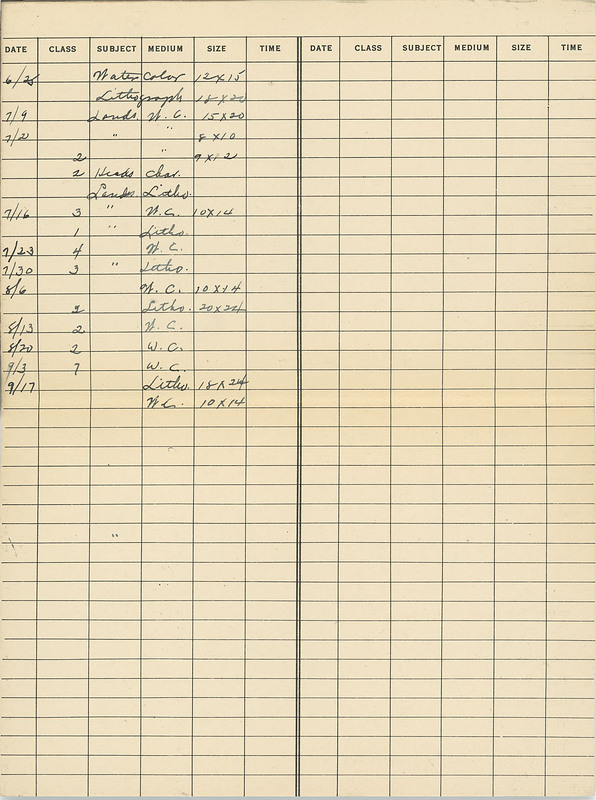 DATE CLASS SUBJECT MEDIUM SIZE TIME DATE CLASS SUBJECT MEDIUM SIZE TIME
6/25 Water Color 12x15
Lithograph 18x20
7/9 Lands. W.C. 15x20
7/2 " " 8x10
2 " 9x12
2 Heads Char.
Lands. Litho.
7/16 3 " W.C. 10x14
1 " Litho.
7/23 4 W.C.
7/30 3 " Litho.
8/6 W.C. 10x14
2 Litho. 20x24
8/13 2 W.C.
8/20 2 W.C.
9/3 7 W.C.
9/17 Litho. 18x24
W.C. 10x14
"